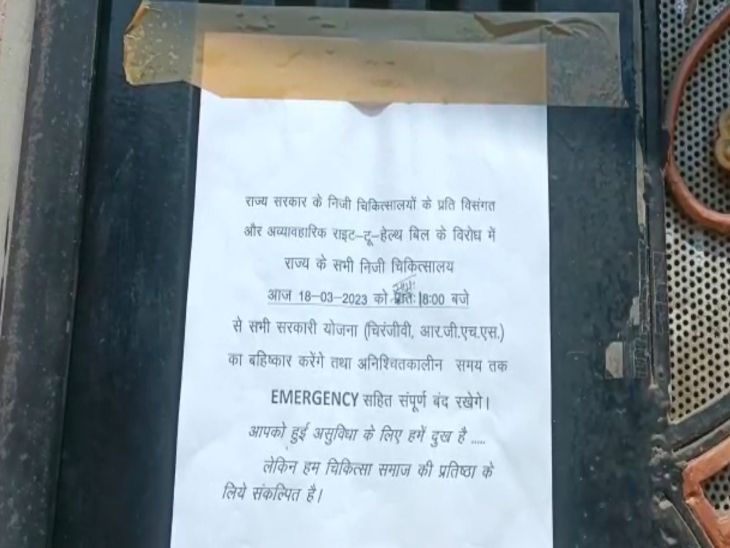 राज्य सरकार के निजी चिकित्सालयों के प्रति विसंगत
और अव्यावहारिक राइट–टू–हेल्थ बिल के विरोध में
राज्य के सभी निजी चिकित्सालय
आज 18–03–2023 को प्रातः 8:00 बजे
से सभी सरकारी योजना (चिरंजीवी, आर.जी.एच.एस.)
का बहिष्कार करेंगे तथा अनिश्चितकालीन समय तक
EMERGENCY सहित संपूर्ण बंद रखेगे।
आपको हुई असुविधा के लिए हमें दुख है .....
लेकिन हम चिकित्सा समाज की प्रतिष्ठा के
लिये संकल्पित है।